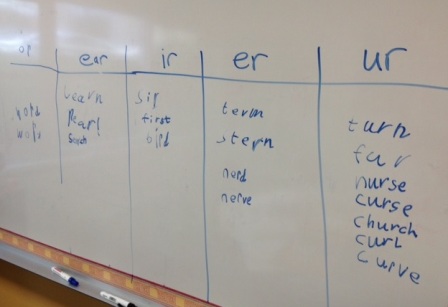 or
word
ear
Learn
Pearl
ir
sir
first
bird
er
term
stern
nerd
nerve
ur
turn
fur
nurse
curse
church
curl
curve